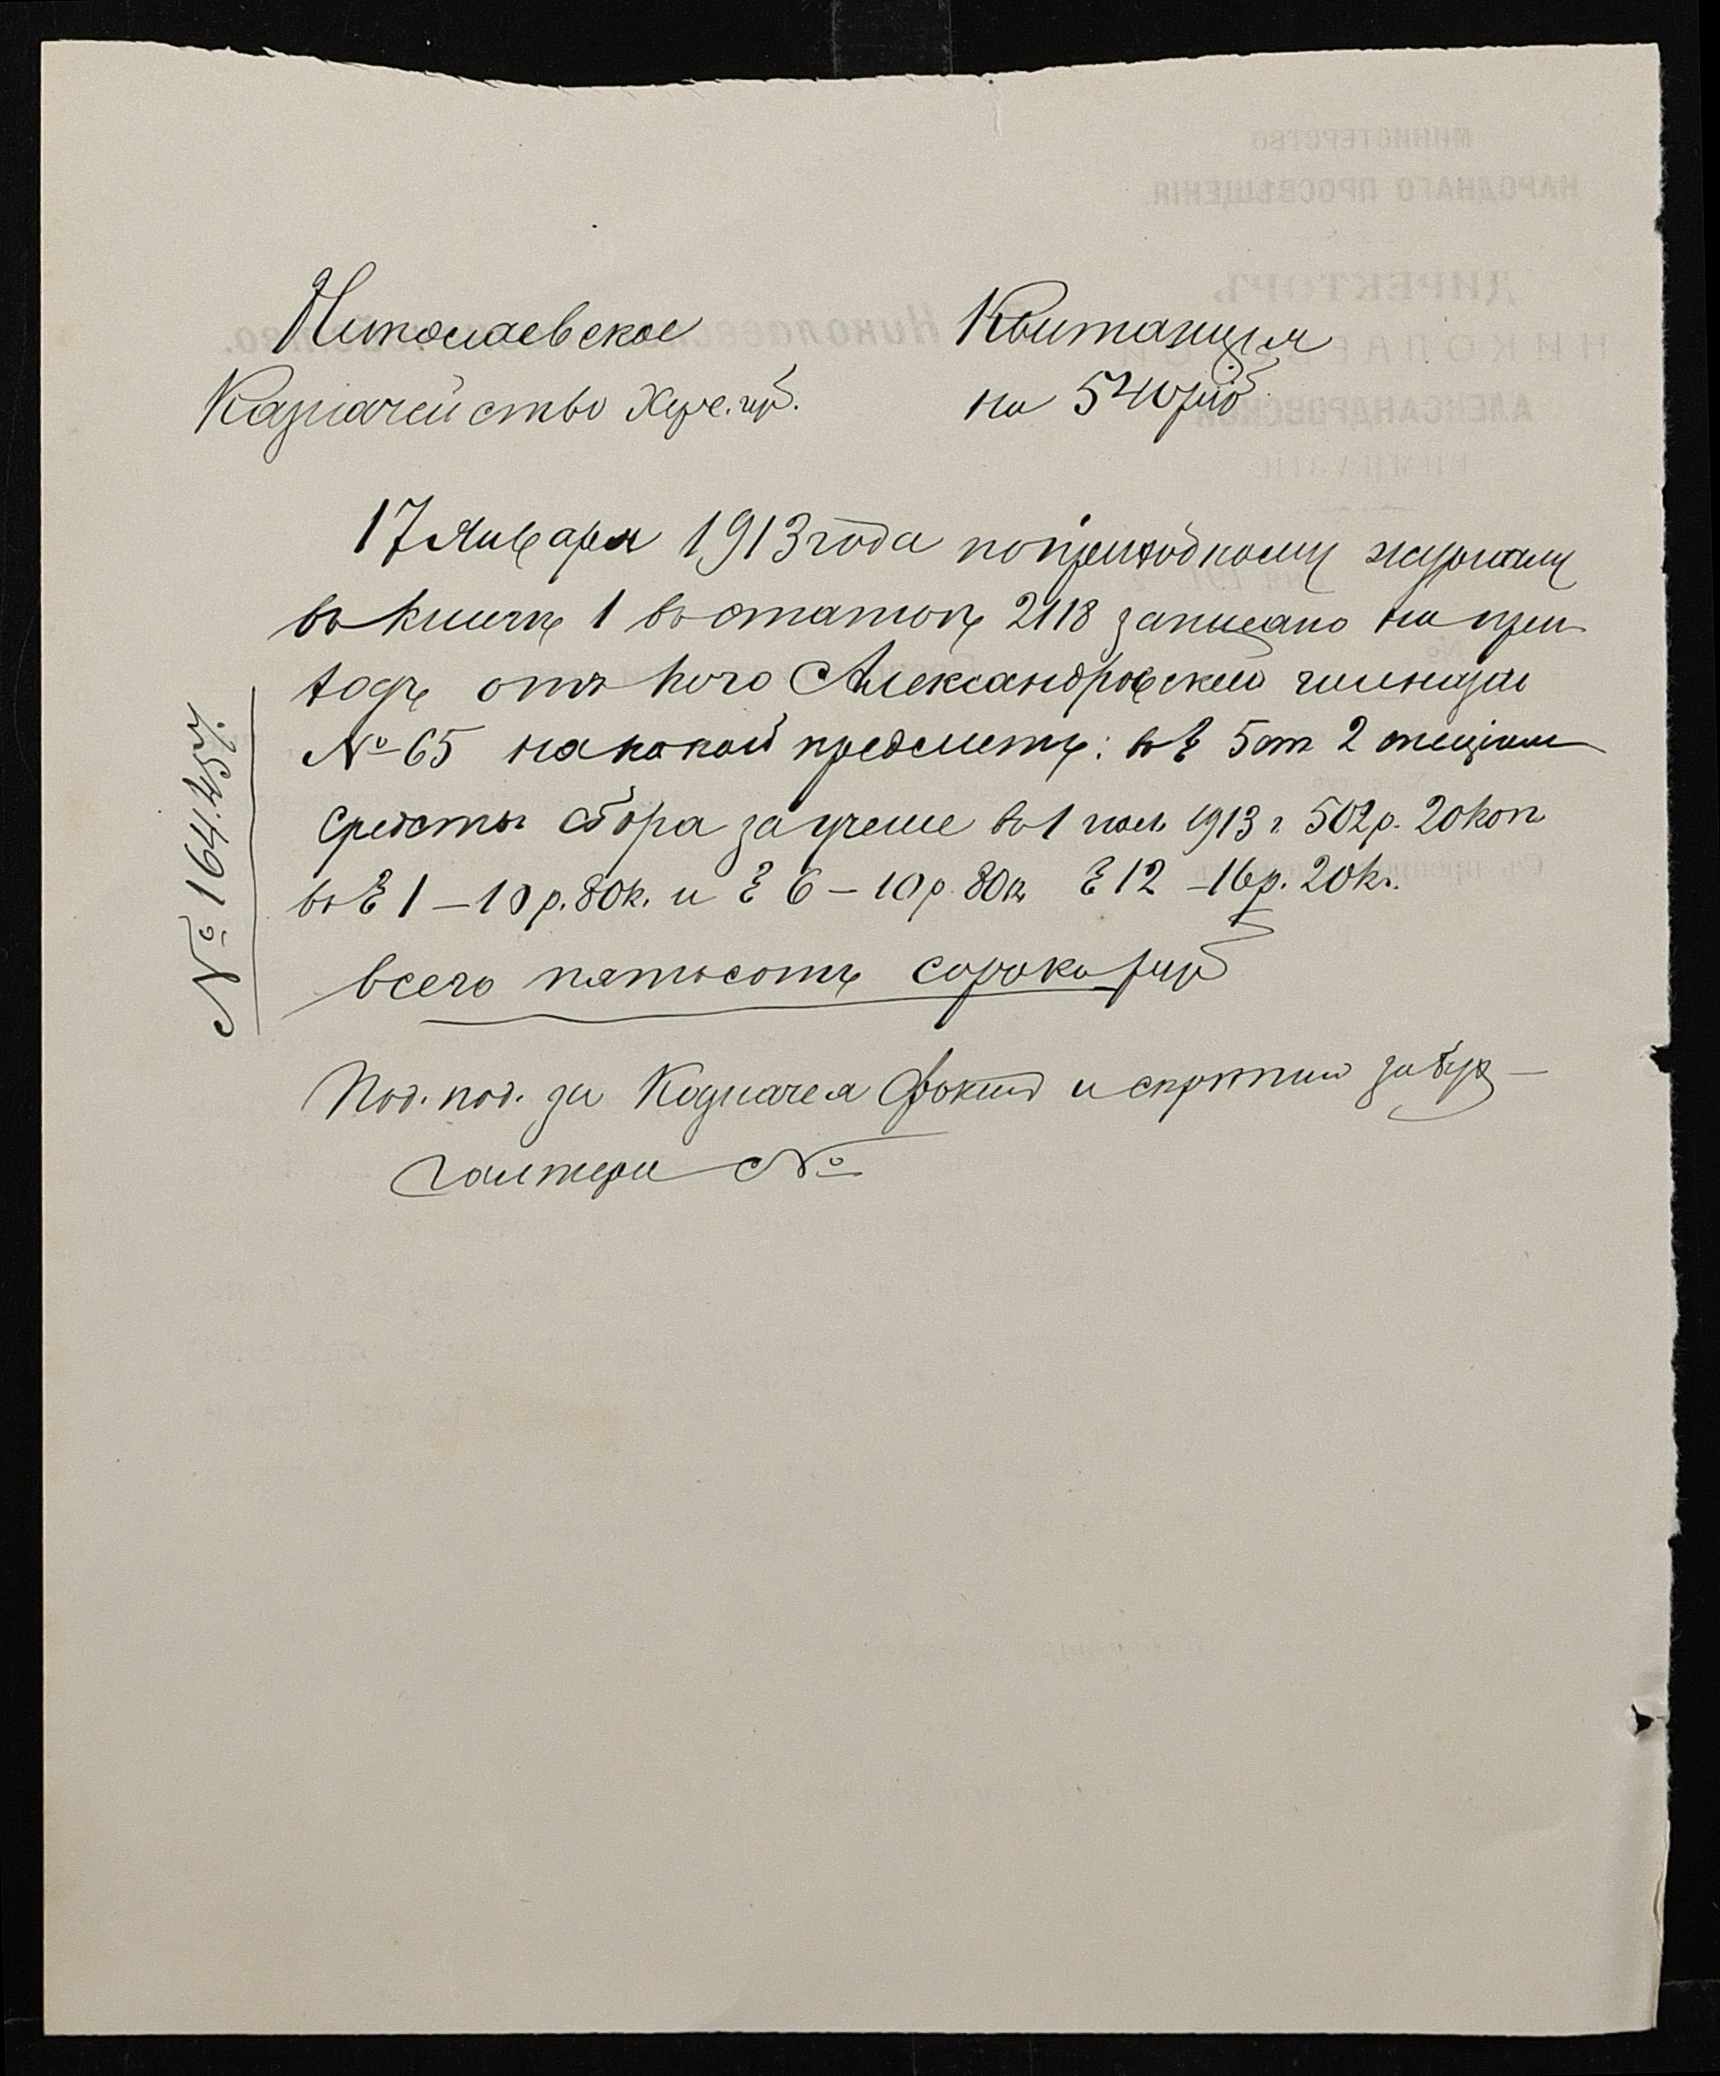 Николаевское
Казначейство Херс. губ.
Квитанция
на 540 руб
17 Января 1913 года по приходному журналу
въ книгѣ 1 въ статьѣ 2118 записано на при
ходъ отъ Александровской гимназіи
№ 65 на какой предметъ: въ § 5 ст 2 спеціальн
средствъ сбора за ученіе въ 1 пол 1913 г 502 р. 20 коп
въ § 1 – 10 р. 80 к. и § 6 – 10 р. 80 к § 12 – 16 р. 20 к.
всего пятьсотъ сорокъ руб
Под. под. за Казначея и скрѣпил за бух
галтера №
№ 164.457.